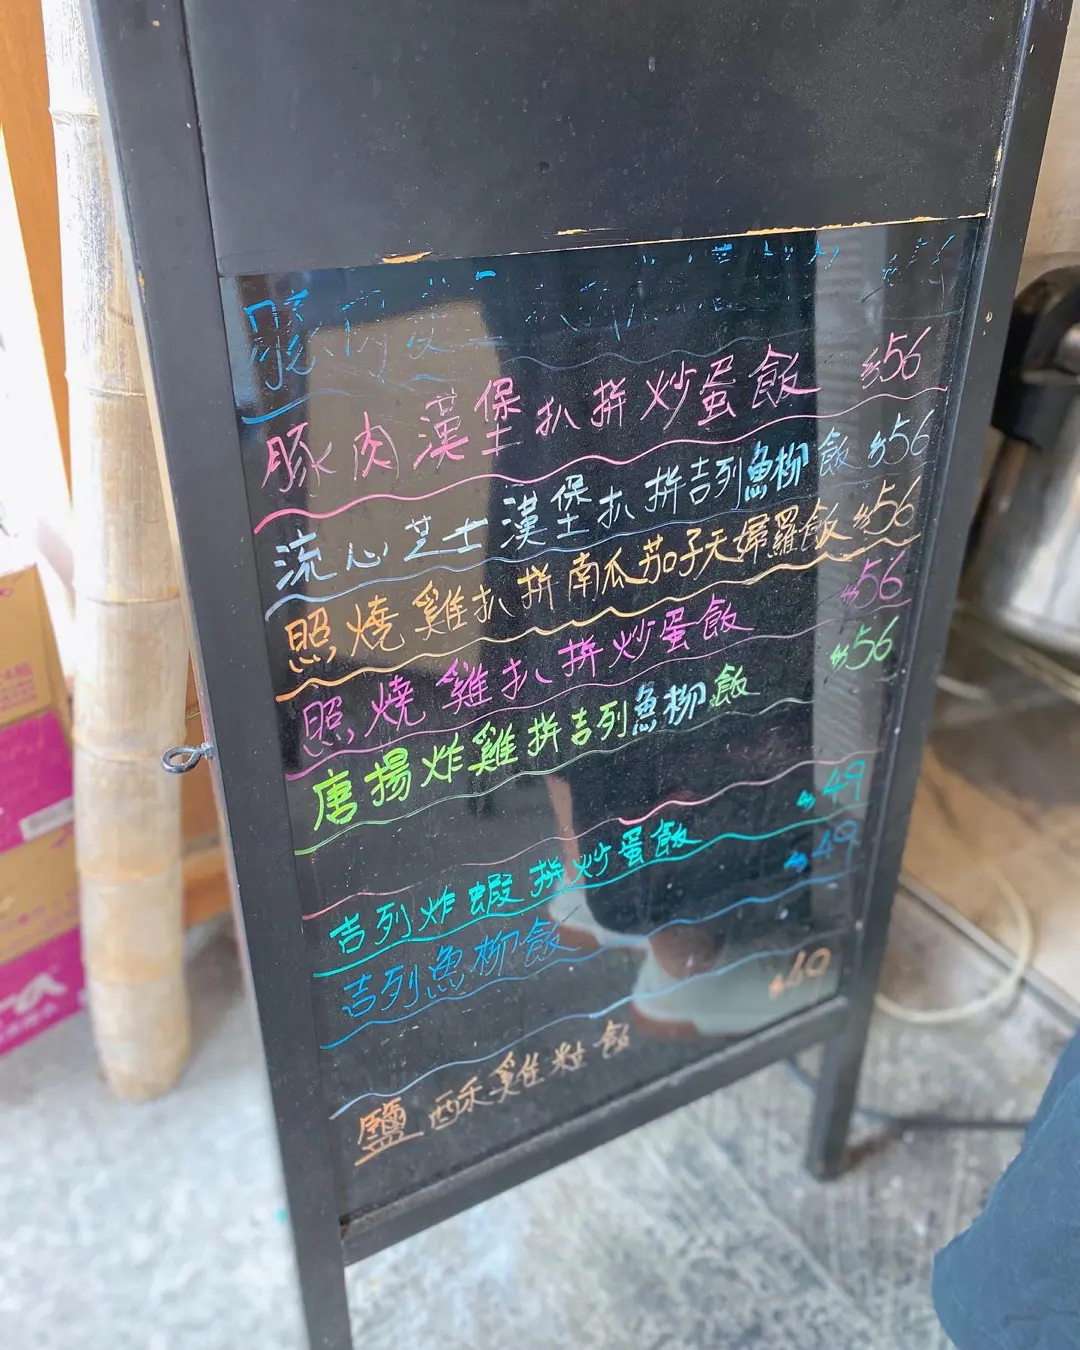 豚肉
豚肉漢堡扒拼炒蛋飯 $56
流心芝士漢堡扒拼吉列魚柳飯 $56
照燒雞扒拼南瓜茄子天婦羅飯 $56
照燒雞扒拼炒蛋飯 $56
唐揚炸雞拼吉列魚柳飯 $56
吉列炸蝦拼炒蛋飯 $49
吉列魚柳飯 $49
鹽酥雞粒飯 $40